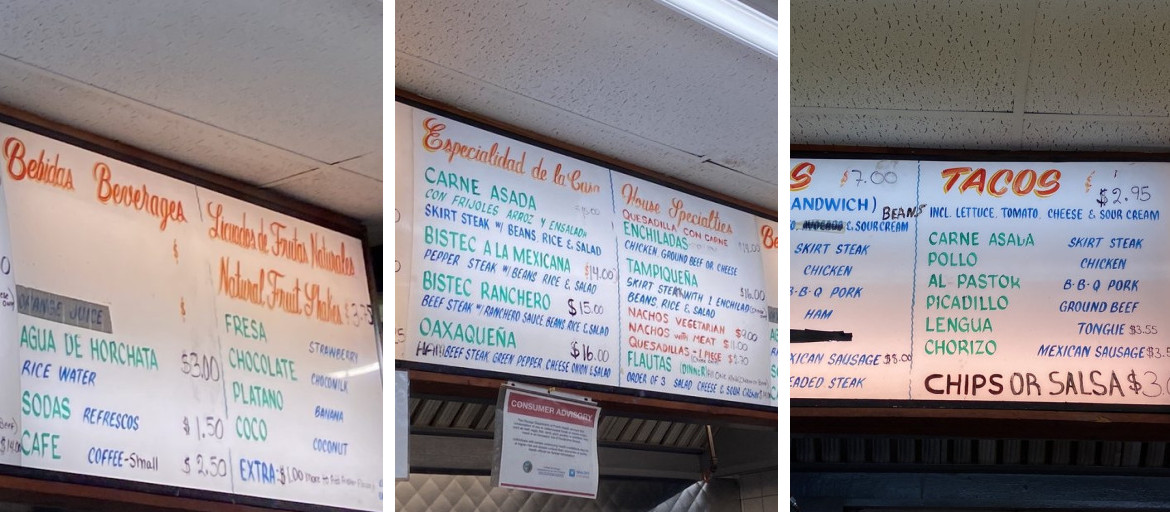 Bebidas Beverages
$
$
ORANGE JUICE
AGUA DE HORCHATA $3.00
RICE WATER
SODAS REFRESCOS $1.50
CAFE COFFEE-Small $2.50
Licuados de Frutas Naturales
Natural Fruit Shakes $3.75
FRESA STRAWBERRY
CHOCOLATE CHOCOMILK
PLATANO BANANA
COCO COCONUT
EXTRA-$1.00 more to
Especialidad de la Casa
CARNE ASADA
CON FRIJOLES ARROZ Y ENSALADA
SKIRT STEAK W/ BEANS, RICE & SALAD
BISTEC A LA MEXICANA $14.00
PEPPER STEAK W/BEANS RICE & SALAD
BISTEC RANCHERO $15.00
BEEF STEAK W/RANCHERO SAUCE, BEANS RICE & SALAD
OAXAQUEÑA $16.00
BEEF STEAK, GREEN PEPPER, CHEESE ONION & SALAD
House Specialties
QUESADILLA CON CARNE
ENCHILADAS
CHICKEN, GROUND BEEF OR CHEESE
TAMPIQUEÑA $16.00
SKIRT STEAK WITH 1 ENCHILADA
BEANS, RICE & SALAD
NACHOS VEGETARIAN $9.00
NACHOS with MEAT $11.00
QUESADILLAS-1 PIECE
FLAUTAS (DINNER)
ORDER OF 3 SALAD, CHEESE & SOUR CREAM
Be
CONSUMER ADVISORY
S $7.00
ANDWICH) BEANS
& SOUR CREAM
SKIRT STEAK
CHICKEN
B-B-Q PORK
HAM
XICAN SAUSAGE $8.00
EADED STEAK
TACOS $ $2.95
INCL. LETTUCE, TOMATO, CHEESE & SOUR CREAM
CARNE ASADA SKIRT STEAK
POLLO CHICKEN
AL-PASTOR B-B-Q PORK
PICADILLO GROUND BEEF
LENGUA TONGUE $3.55
CHORIZO MEXICAN SAUSAGE $3.5
CHIPS OR SALSA $3.